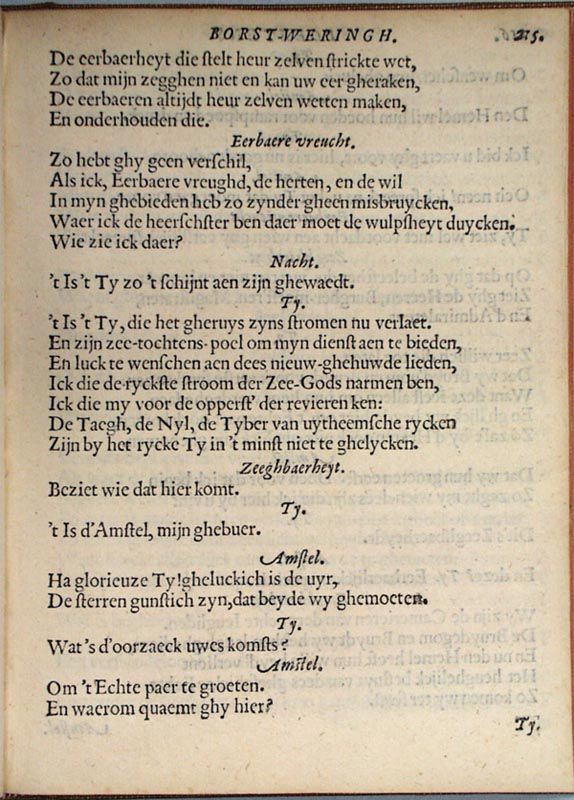 BORST-WERINGH. 215.
De eerbaerheyt die stelt heur zelven strickte wet,
Zo dat mijn zegghen niet en kan uw eer gheraken,
De eerbaeren altijdt heur zelven wetten maken,
En onderhouden die.
Eerbaere vreucht.
Zo hebt ghy geen verschil,
Als ick, Eerbaere vreughd, de herten, en de wil
In myn ghebieden heb zo zynder gheen misbruycken,
Waer ick de heerschster ben daer moet de wulpsheyt duycken.
Wie zie ick daer?
Nacht.
't Is 't Ty zo 't schijnt aen zijn ghewaedt.
Ty.
't Is 't Ty, die het gheruys zyns stromen nu verlaet.
En zijn zee-tochtens-poel om myn dienst aen te bieden,
En luck te wenschen aen dees nieuw-ghehuwde lieden,
Ick die de ryckste stroom der Zee-Gods narmen ben,
Ick die my voor de opperst' der revieren ken:
De Taegh, de Nyl, de Tyber van uytheemsche rycken
Zijn by het rycke Ty in 't minst niet te ghelycken.
Zeeghbaerheyt.
Beziet wie dat hier komt.
Ty.
't Is d'Amstel, mijn ghebuer.
Amstel.
Ha glorieuze Ty! gheluckich is de uyr,
De sterren gunstich zyn, dat beyde wy ghemoeten.
Ty.
Wat's d'oorzaeck uwes komsts?
Amstel.
Om 't Echte paer te groeten.
En waerom quaemt ghy hier?
Ty.